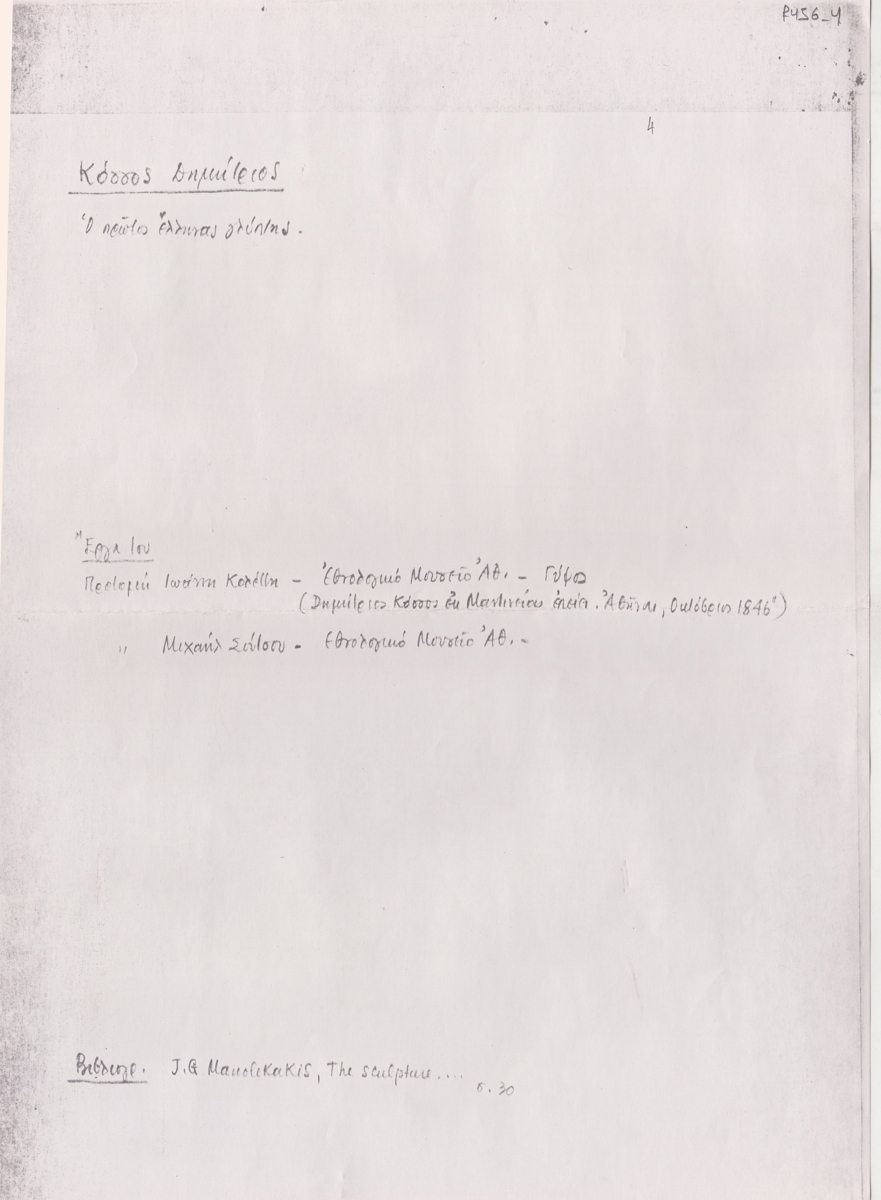 P456_4
4
Κόσσος Δημήτριος
Ὁ πρῶτος ἕλληνας γλύπτης.
Ἔργα του
Προτομή Ιωάννη Κωλέττη - Ἐθνολογικό Μουσεῖο Ἀθ. - Γύψος
(Δημήτριος Κόσσος ἐκ Μαντινείας ἐποίει. Ἀθῆναι, Οκτώβριος 1846")
" Μιχαήλ Σούτσου - Ἐθνολογικό Μουσεῖο Ἀθ. -
Βιβλιογρ. J.G Manolikakis, The sculpture....
σ. 30